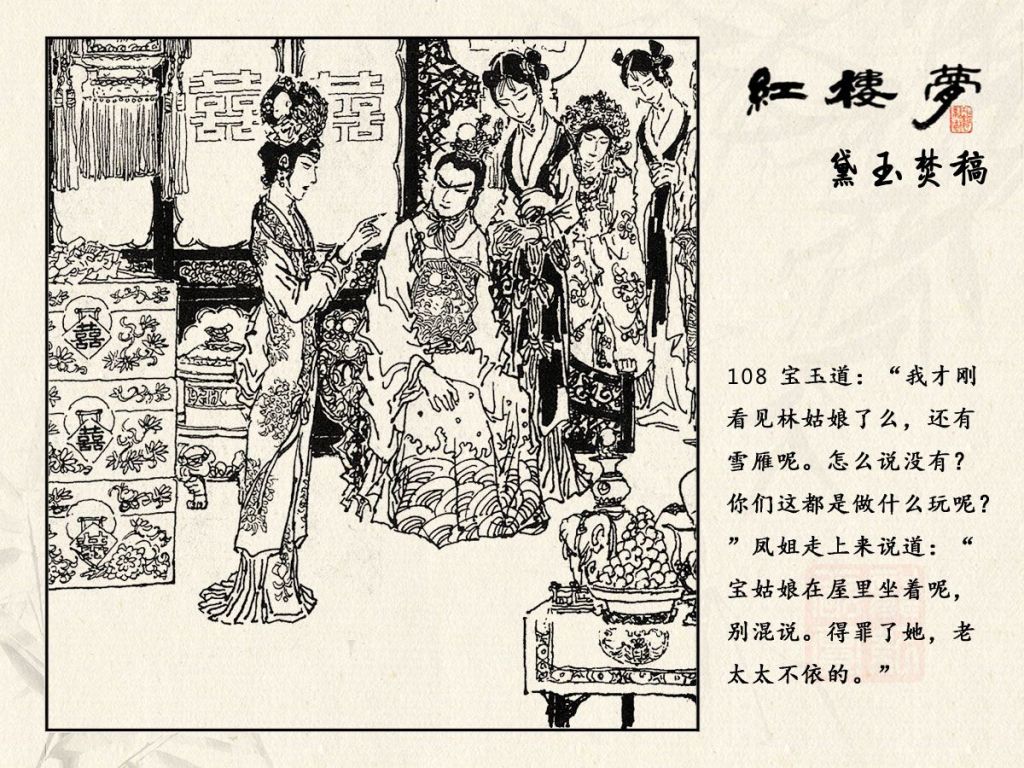 紅樓夢
黛玉焚稿
108 宝玉道：“我才刚
看见林姑娘了么，还有
雪雁呢。怎么说没有？
你们这都是做什么玩呢？
”凤姐走上来说道：“
宝姑娘在屋里坐着呢，
别混说。得罪了她，老
太太不依的。”
囍 囍
囍
囍
囍